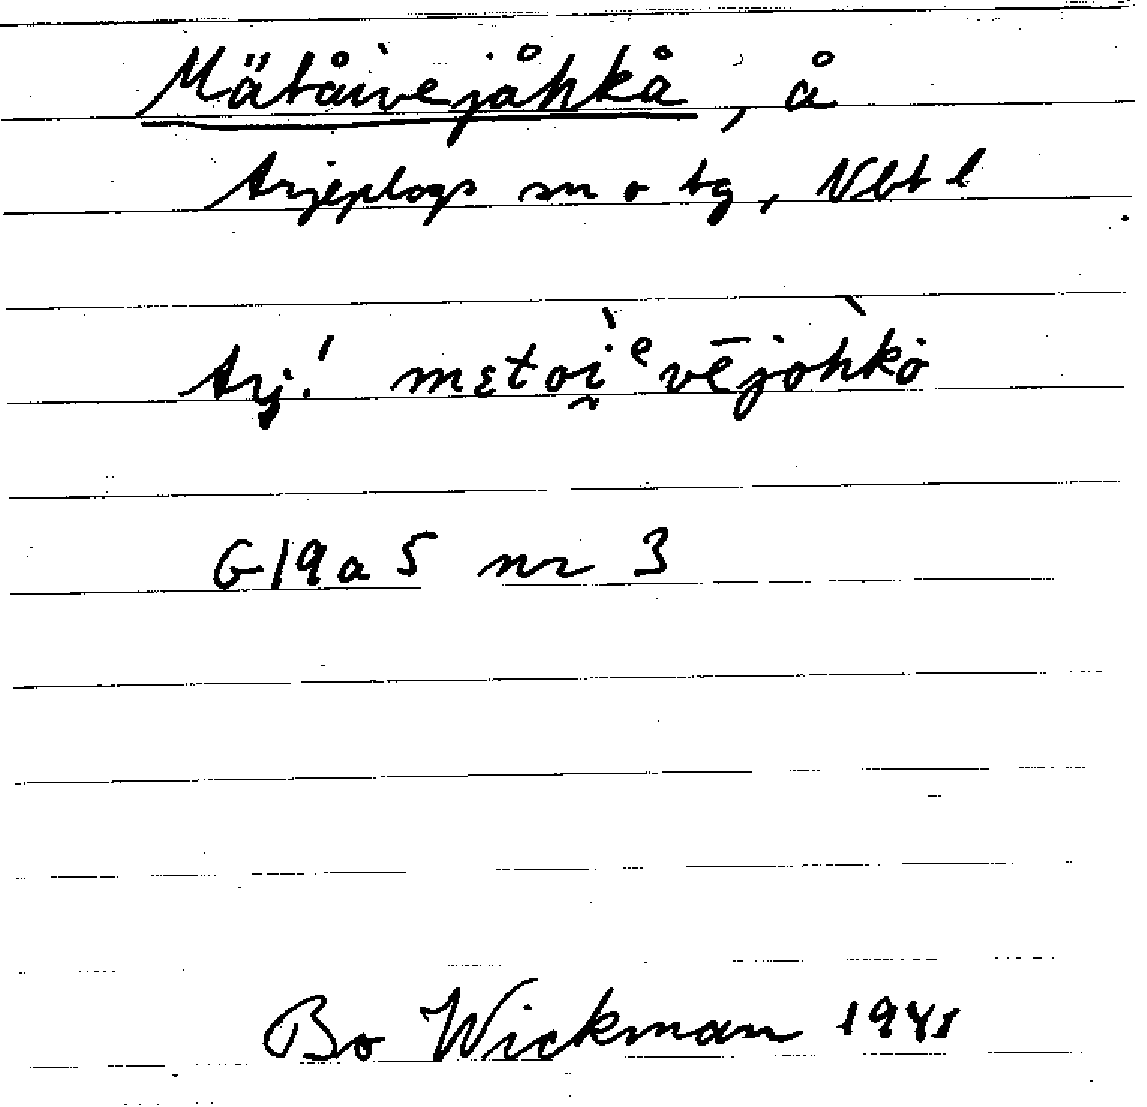 Mätåivejåhkå, å
Arjeplogs sn o tg, Nbt l
Arj! mɛtoi̭ᵉvējohkȯ
G19a5 nr 3
Bo Wickman 1941